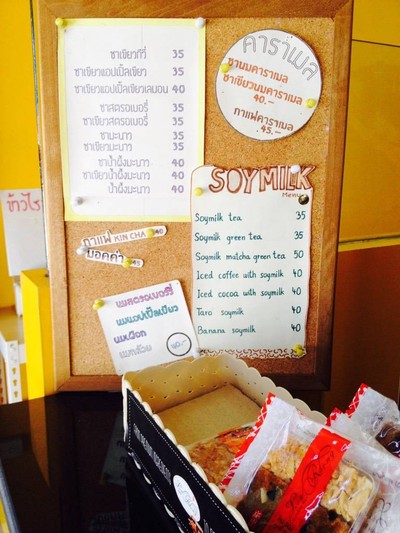 ชาเขียวกีวี่ 35
ชาเขียวแอปเปิ้ลเขียว 35
ชาเขียวแอปเปิ้ลเขียวเลมอน 40
ชาสตรอเบอรี่ 35
ชาเขียวสตรอเบอรี่ 35
ชามะนาว 35
ชาเขียวมะนาว 35
ชาน้ำผึ้งมะนาว 40
ชาเขียวน้ำผึ้งมะนาว 40
น้ำผึ้งมะนาว 40
คาราเมล
ชานมคาราเมล
ชาเขียวนมคาราเมล
40.-
กาแฟคาราเมล
45.-
SOYMILK
Menu
Soymilk tea 35
Soymilk green tea 35
Soymilk matcha green tea 50
Iced coffee with soymilk 40
Iced cocoa with soymilk 40
Taro soymilk 40
Banana soymilk 40
กาแฟ KIN CHA 40
มอคค่า
นมสตรอเบอร์รี่
นมแอปเปิ้ลเขียว
นมเผือก
นมกล้วย
ข้าวไร